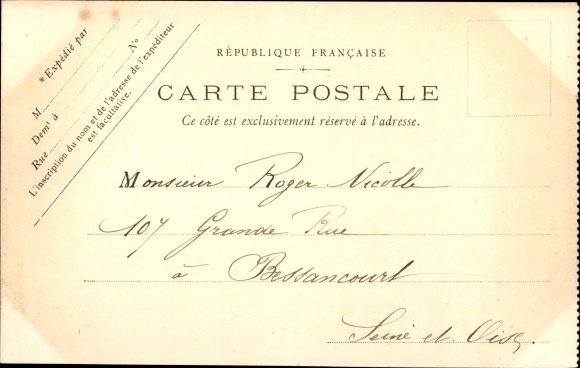 *Expédié par
M
Demt à
Rue N°
L'inscription du nom et de l'adresse de l'expéditeur
est facultative.
RÉPUBLIQUE FRANÇAISE
CARTE POSTALE
Ce côté est exclusivement réservé à l'adresse.
Monsieur Roger Nicolle
107 Grande Rue
à Bessancourt
Seine et Oise.